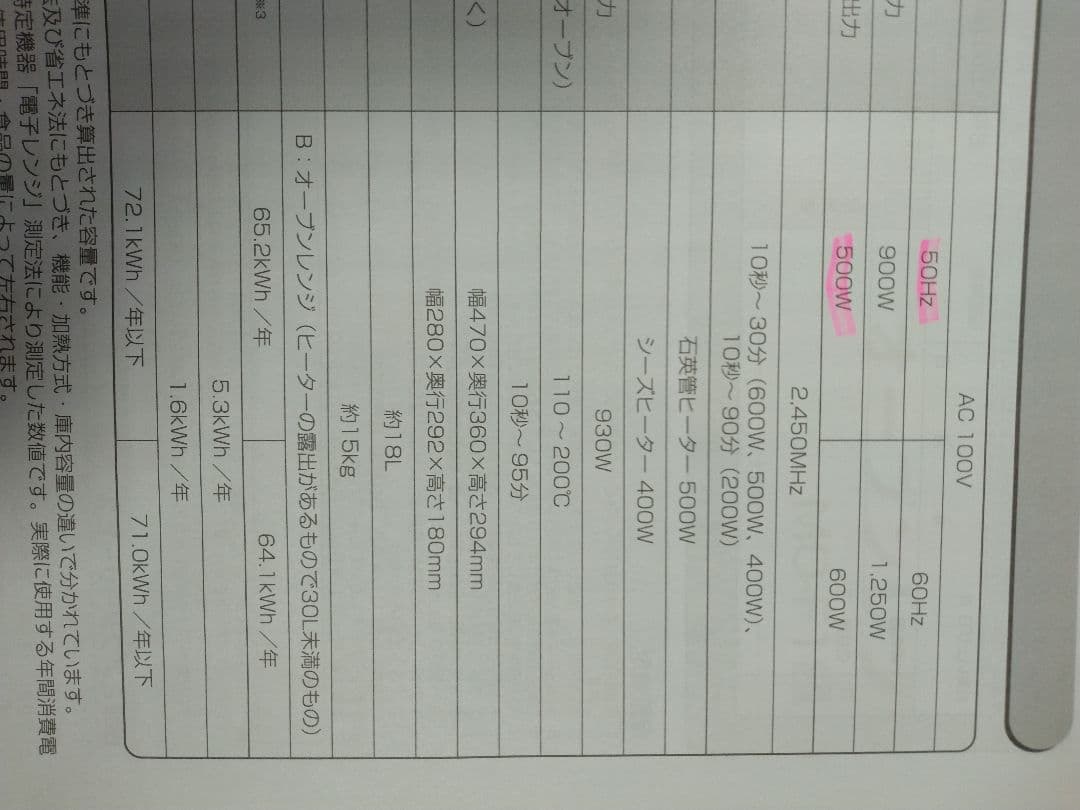 AC 100V
50Hz 60Hz
力 900W 1,250W
出力 500W 600W
2,450MHz
10秒〜30分（600W、500W、400W）、
10秒〜90分（200W）
石英管ヒーター 500W
シーズヒーター 400W
力 930W
オーブン） 110〜200℃
10秒〜95分
く） 幅470×奥行360×高さ294mm
幅280×奥行292×高さ180mm
約18L
約15kg
B：オーブンレンジ（ヒーターの露出があるもので30L未満のもの）
※3 65.2kWh／年 64.1kWh／年
5.3kWh／年
1.6kWh／年
72.1kWh／年以下 71.0kWh／年以下
準にもとづき算出された容量です。
及び省エネ法にもとづき、機能・加熱方式・庫内容量の違いで分かれています。
特定機器「電子レンジ」測定法により測定した数値です。実際に使用する年間消費電
使用時間・食品の量によって左右されます。